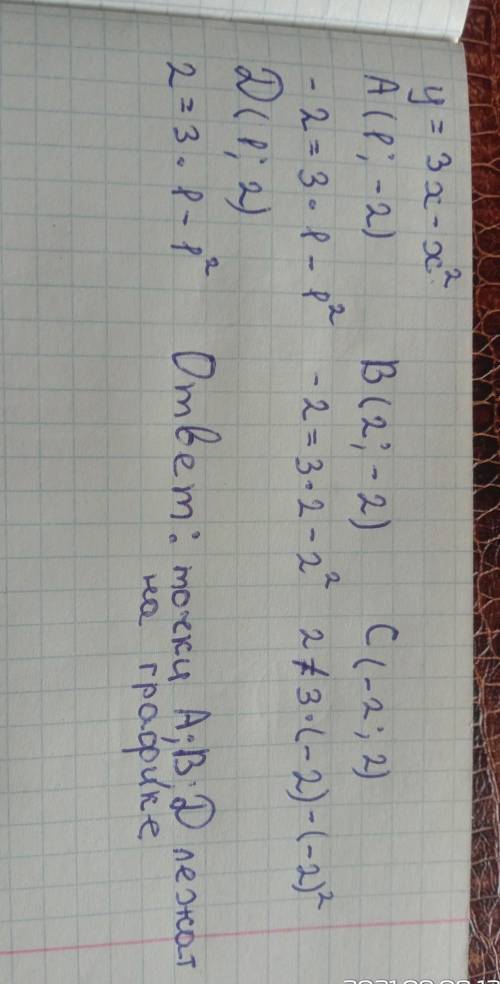 y = 3x - x²
A(1; -2) B(2; -2) C(-2; 2)
-2 = 3·1 - 1² -2 = 3·2 - 2² 2 ≠ 3·(-2) - (-2)²
D(1; 2)
2 = 3·1 - 1² Ответ: точки A; B; D лежат
на графике